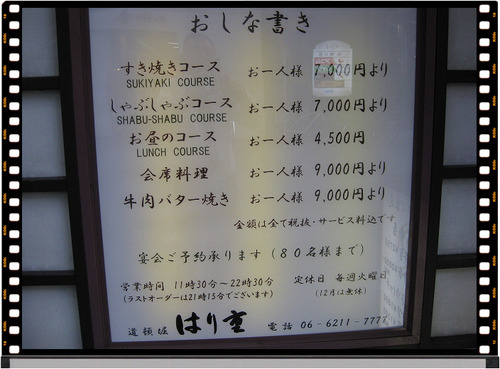 おしな書き
すき焼きコース お一人様 7,000円より
SUKIYAKI COURSE
しゃぶしゃぶコース お一人様 7,000円より
SHABU-SHABU COURSE
お昼のコース お一人様 4,500円
LUNCH COURSE
会席料理 お一人様 9,000円より
牛肉バター焼き お一人様 9,000円より
金額は全て税抜・サービス料込です
宴会ご予約承ります（８０名様まで）
営業時間 11時30分～22時30分 定休日 毎週火曜日
（ラストオーダーは21時15分でございます） （12月は無休）
道頓堀 はり重 電話 06-6211-7777